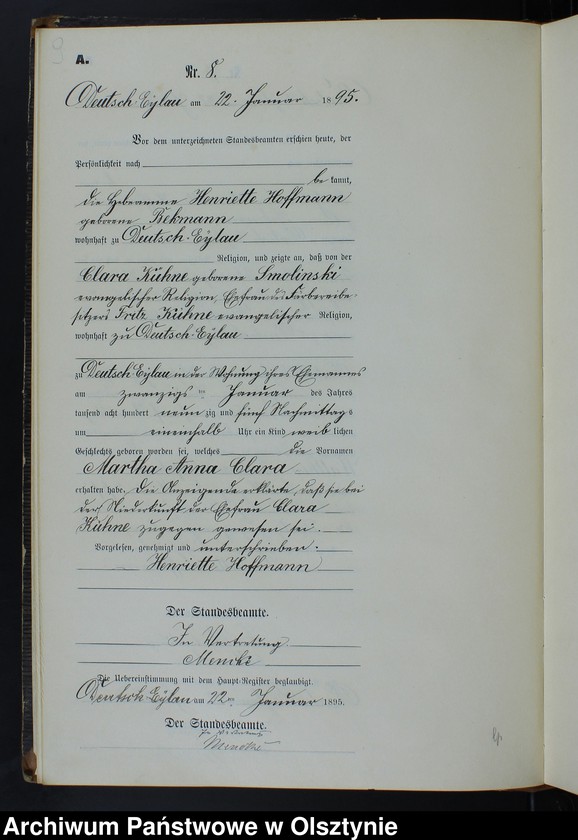 A.
Nr. 8.
Deutsch-Eylau am 22. Januar 1895.
Vor dem unterzeichneten Standesbeamten erschien heute, der
Persönlichkeit nach
be kannt,
die Hebeamme Henriette Hoffmann
geborene Rekmann
wohnhaft zu Deutsch-Eylau
Religion, und zeigte an, daß von der
Clara Kühne geborene Smolinski
evangelischer Religion, Ehefrau des Färbereibe
sitzers Fritz Kühne evangelischer Religion,
wohnhaft zu Deutsch-Eylau
zu Deutsch-Eylau in der Wohnung ihres Ehemannes
am zwanzigsten Januar des Jahres
tausend acht hundert neun zig und fünf Nachmittags
um eineinhalb Uhr ein Kind weib lichen
Geschlechts geboren worden sei, welches die Vornamen
Martha Anna Clara
erhalten habe. Die Anzeigende erklärte, daß sie bei
der Niederkunft der Ehefrau Clara
Kühne zugegen gewesen sei.
Vorgelesen, genehmigt und unterschrieben:
Henriette Hoffmann
Der Standesbeamte.
In Vertretung
Mencke
Die Uebereinstimmung mit dem Haupt-Register beglaubigt.
Deutsch-Eylau am 22ten Januar 1895.
Der Standesbeamte.
In Vertretung
Mencke
Archiwum Państwowe w Olsztynie